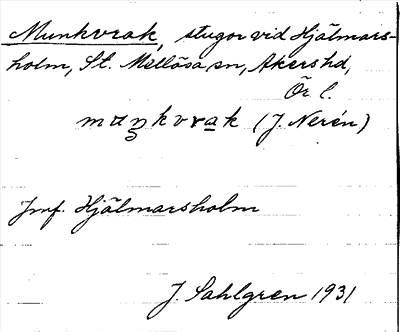 Munkvrak, stugor vid Hjälmars-
holm, St. Mellösa sn, Akers hd,
Ör. l.
mаŋkvrak (J. Nerén)
Jmf. Hjälmarsholm
J. Sahlgren 1931